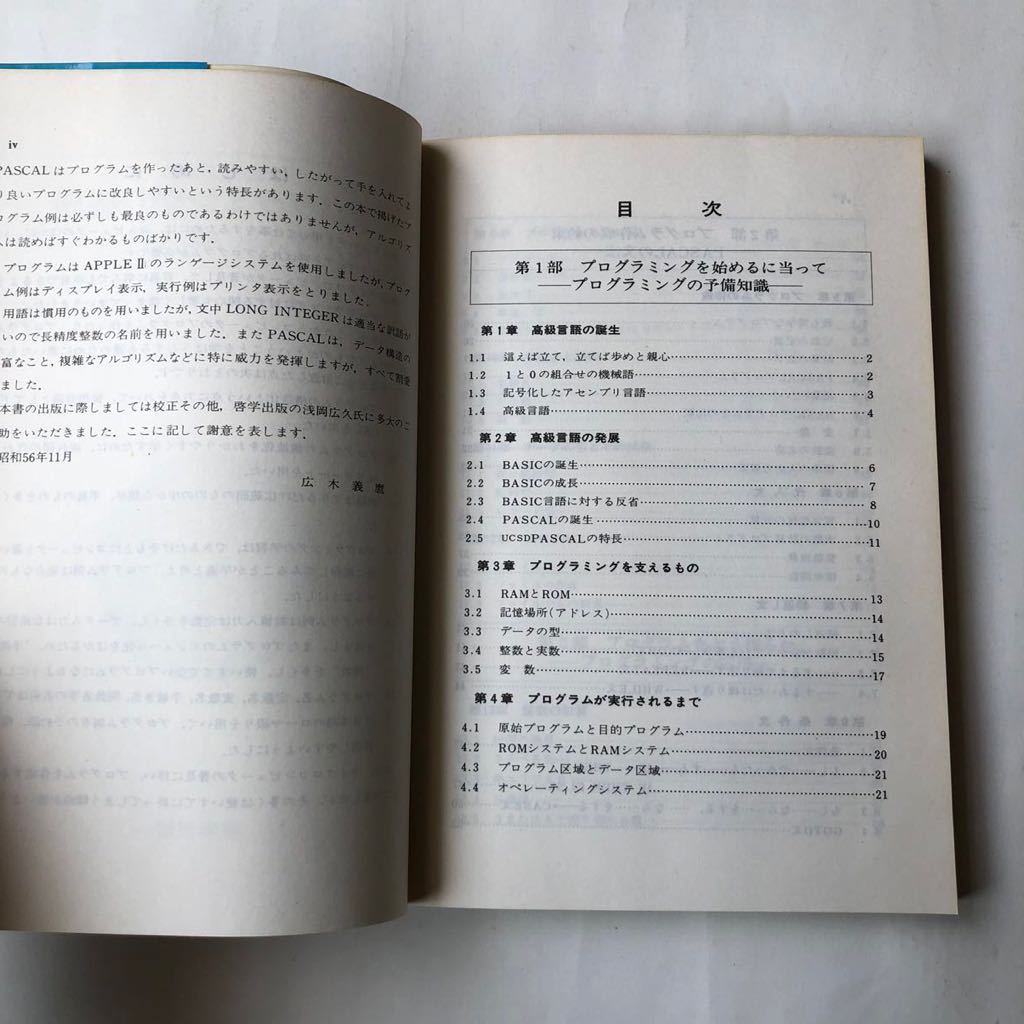 iv
PASCALはプログラムを作ったあと，読みやすい，したがって手を入れてよ
り良いプログラムに改良しやすいという特長があります．この本で掲げたプ
ログラム例は必ずしも最良のものであるわけではありませんが，アルゴリズ
ムは読めばすぐわかるものばかりです．
プログラムはAPPLE IIのランゲージシステムを使用しましたが，プログ
ラム例はディスプレイ表示，実行例はプリンタ表示をとりました．
用語は慣用のものを用いましたが，文中LONG INTEGERは適当な訳語が
いので長精度整数の名前を用いました．またPASCALは，データ構造の
富なこと，複雑なアルゴリズムなどに特に威力を発揮しますが，すべて割愛
ました．
本書の出版に際しましては校正その他，啓学出版の浅岡広久氏に多大のご
助をいただきました．ここに記して謝意を表します．
昭和56年11月
広木義麿
目次
第1部 プログラミングを始めるに当って
――プログラミングの予備知識――
第1章 高級言語の誕生
1.1 這えば立て，立てば歩めと親心……2
1.2 1と0の組合せの機械語……2
1.3 記号化したアセンブリ言語……3
1.4 高級言語……4
第2章 高級言語の発展
2.1 BASICの誕生……6
2.2 BASICの成長……7
2.3 BASIC言語に対する反省……8
2.4 PASCALの誕生……10
2.5 UCSDPASCALの特長……11
第3章 プログラミングを支えるもの
3.1 RAMとROM……13
3.2 記憶場所(アドレス)……14
3.3 データの型……14
3.4 整数と実数……15
3.5 変数……17
第4章 プログラムが実行されるまで
4.1 原始プログラムと目的プログラム……19
4.2 ROMシステムとRAMシステム……20
4.3 プログラム区域とデータ区域……21
4.4 オペレーティングシステム……21